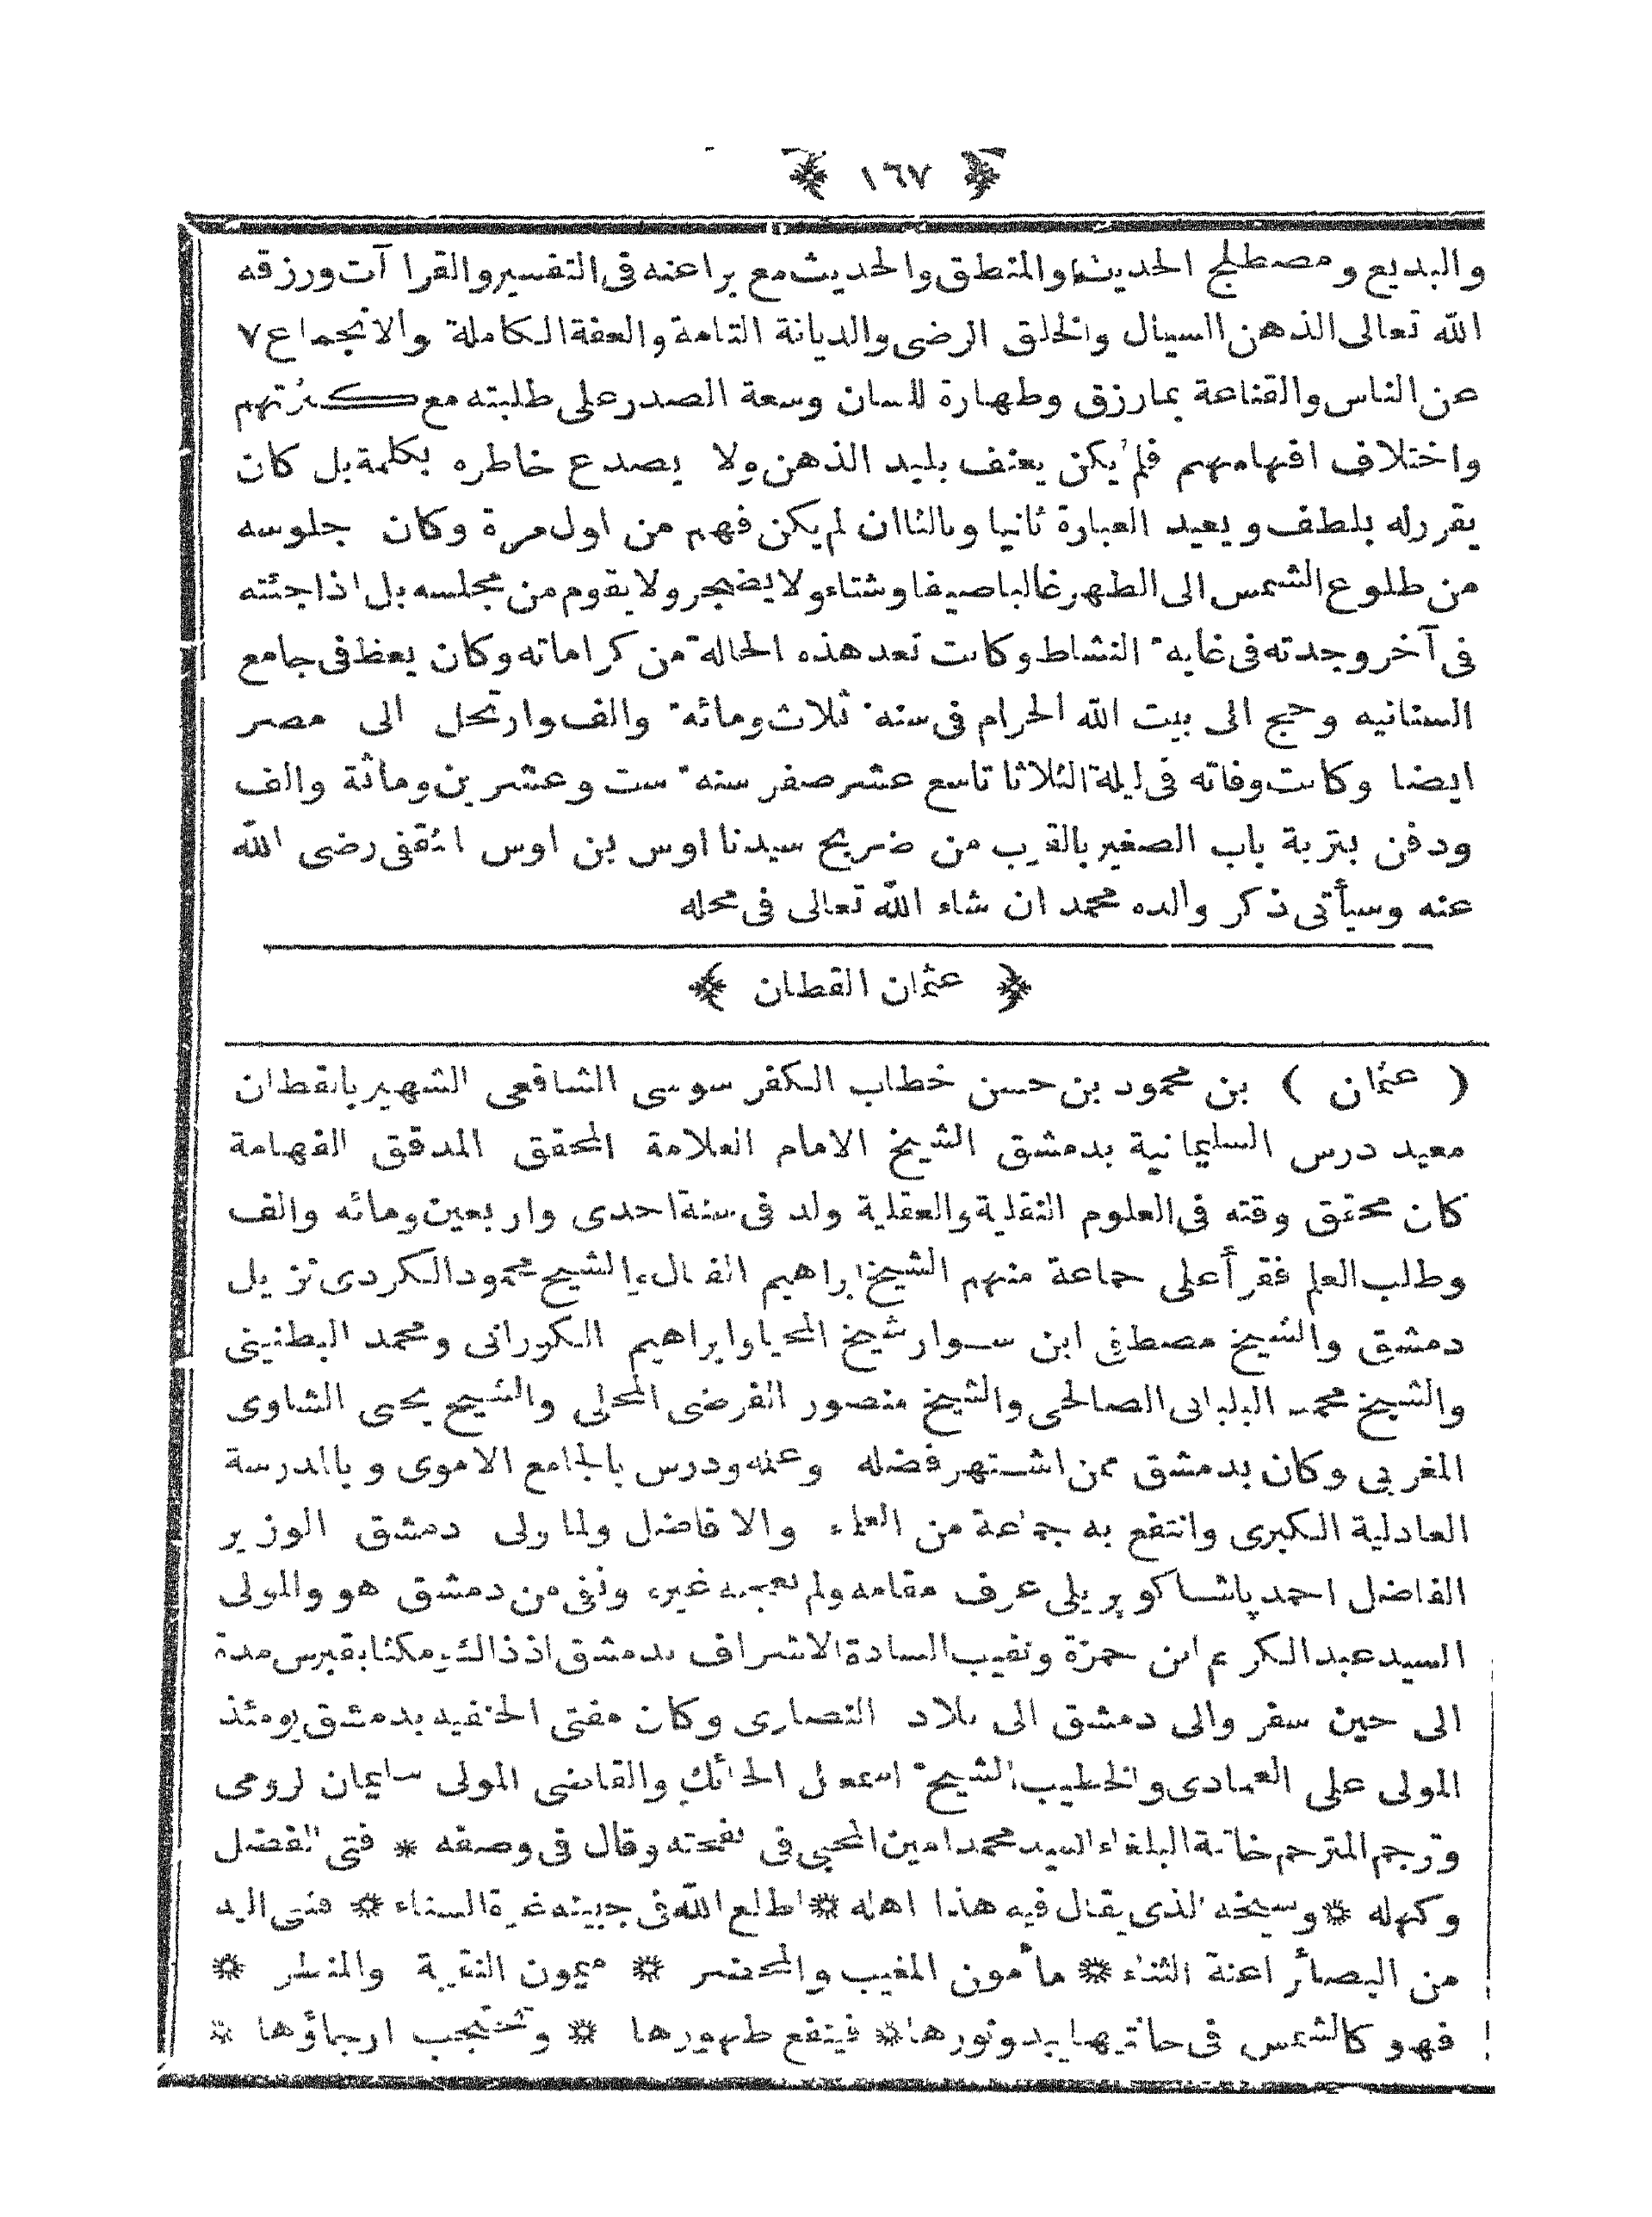 ﴿ ١٦٧ ﴾
والبديع ومصطلح الحديث والمنطق والحديث مع براعته فى التفسير والقراآت ورزقه
الله تعالى الذهن السيال والخلق الرضى والديانة التامة والعفة الكاملة والانجماع ٧
عن الناس والقناعة بما رزق وطهارة للسان وسعة الصدر على طلبته مع كثرتهم
واختلاف افهامهم فلم يكن يعنف بليد الذهن ولا يصدع خاطره بكلمة بل كان
يقرر له بلطف ويعيد العبارة ثانيا وثالثا ان لم يكن فهم من اول مرة وكان جلوسه
من طلوع الشمس الى الظهر غالبا صيفا وشتاء ولا يضجر ولا يقوم من مجلسه بل اذا جئته
فى آخر وجدته فى غاية النشاط وكانت تعد هذه الحالة من كراماته وكان يعظ فى جامع
السنانيه وحج الى بيت الله الحرام فى سنة ثلاث ومائة والف وارتحل الى مصر
ايضا وكانت وفاته فى ليلة الثلاثا تاسع عشر صفر سنة ست وعشرين ومائة والف
ودفن بتربة باب الصغير بالقرب من ضريح سيدنا اوس بن اوس الثقفى رضى الله
عنه وسيأتى ذكر والده محمد ان شاء الله تعالى فى محله
﴿ عثمان القطان ﴾
( عثمان ) بن محمود بن حسن خطاب الكفرسوسى الشافعى الشهير بالقطان
معيد درس السليمانية بدمشق الشيخ الامام العلامة المحقق المدقق الفهامة
كان محقق وقته فى العلوم النقلية والعقلية ولد فى سنة احدى واربعين ومائه والف
وطلب العلم فقرأ على جماعة منهم الشيخ ابراهيم الفتال والشيخ محمود الكردى نزيل
دمشق والشيخ مصطفى ابن سوار شيخ المحيا وابراهيم الكورانى ومحمد البطنينى
والشيخ محمد البلبانى الصالحى والشيخ منصور الفرضى المحلى والشيخ يحيى الشاوى
المغربى وكان بدمشق ممن اشتهر فضله وعمله ودرس بالجامع الاموى وبالمدرسة
العادلية الكبرى وانتفع به جماعة من العلماء والافاضل ولما ولى دمشق الوزير
الفاضل احمد پاشا كوپريلى عرف مقامه ولم يعجبه غيره ونفى من دمشق هو والمولى
السيد عبد الكريم ابن حمزة ونقيب السادة الاشراف بدمشق اذ ذاك ومكثا بقبرس مدة
الى حين سفر والى دمشق الى بلاد النصارى وكان مفتى الحنفيه بدمشق يومئذ
المولى على العمادى والخطيب الشيخ اسمعيل الحائك والقاضى المولى سليمان لرومى
وترجم المترجم خاتمة البلغاء السيد محمد امين المحبى فى نفحته وقال فى وصفه * فتى الفضل
وكهله * وشيخه الذى يقال فيه هذا اهله * اطلع الله فى جبينه غرة السناء * فثنى اليه
من البصائر اعنة الثناء * مأمون المغيب والمحضر * ميمون النقيبة والمنظر *
فهو كالشمس فى حالتيها يبدو نورها * فينفع ظهورها * وتحتجب ارجاؤها *